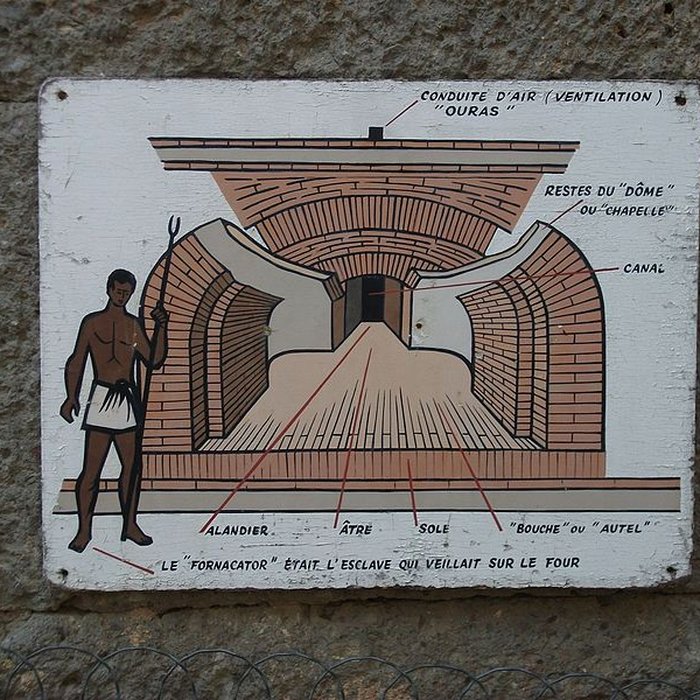 CONDUITE D'AIR (VENTILATION)
"OURAS"
RESTES DU "DÔME"
OU "CHAPELLE"
CANAL
ALANDIER
ÂTRE
SOLE
"BOUCHE" OU "AUTEL"
LE "FORNACATOR" ÉTAIT L'ESCLAVE QUI VEILLAIT SUR LE FOUR